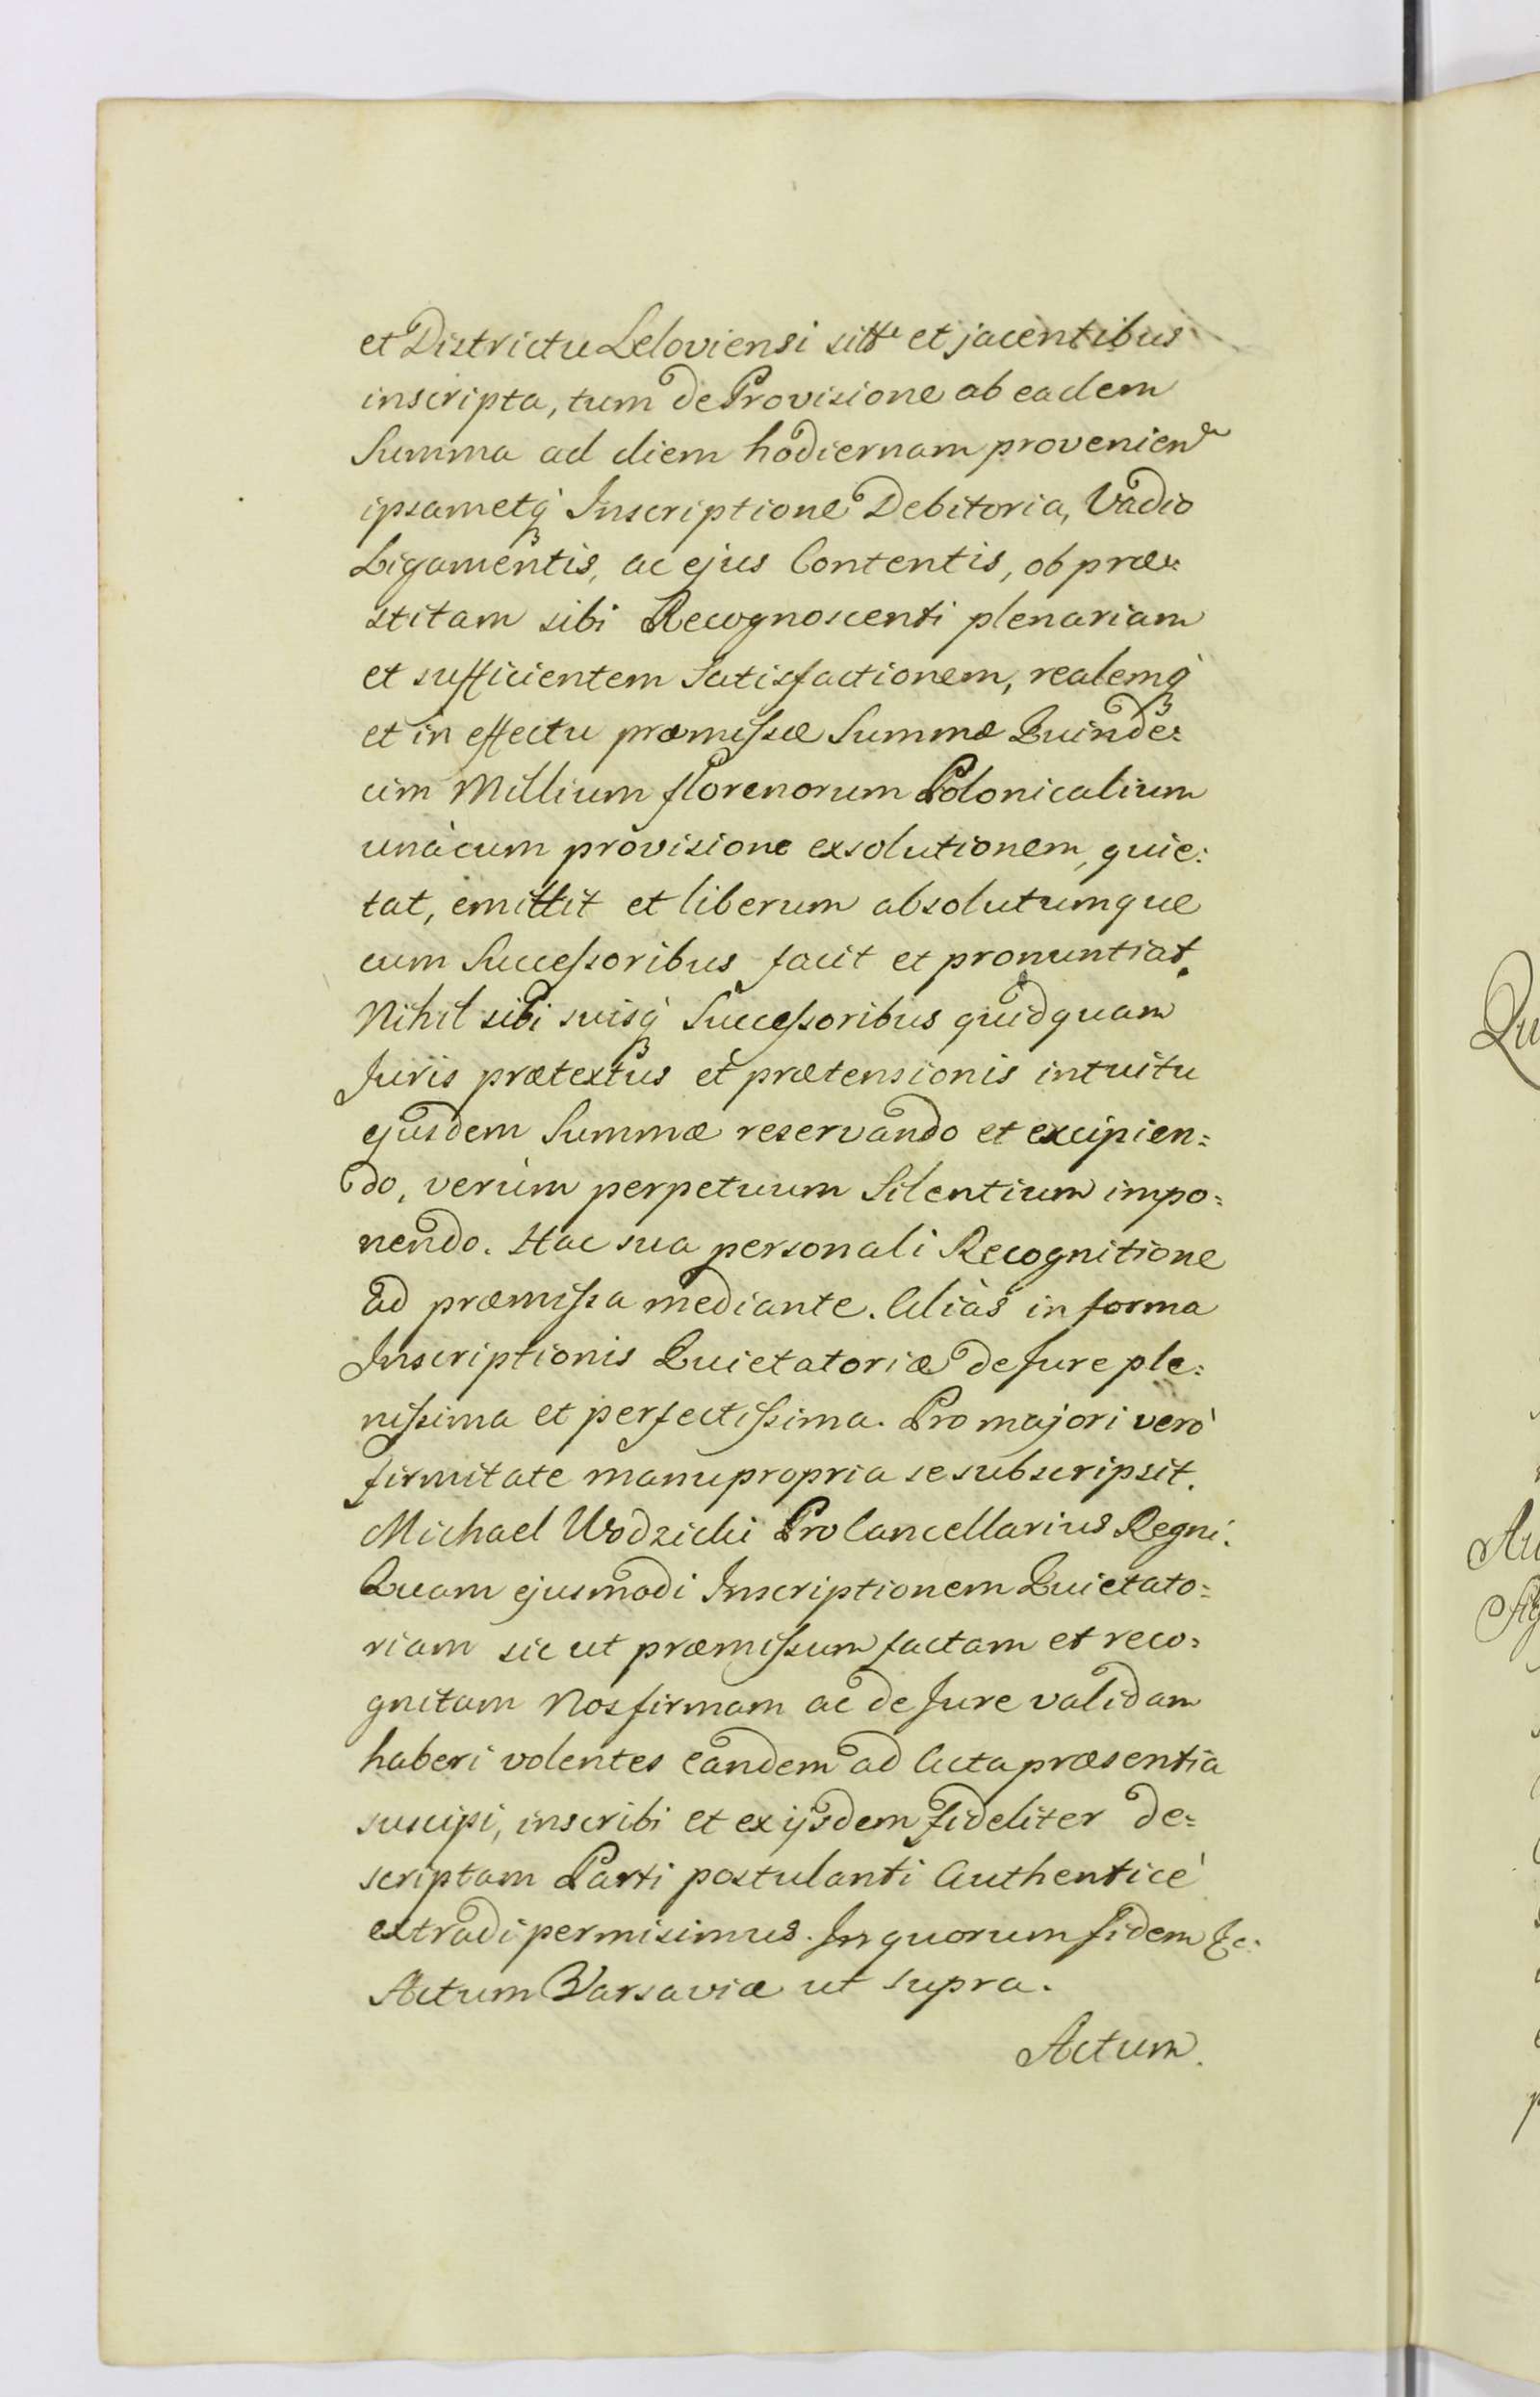 et Districtu Leloviensi sitt: et jacentibus
inscripta, tum de Provisione ab eadem
Summa ad diem hodiernam provenien
ipsametq́ Inscriptione Debitoria, Vadio
Ligamentis, ac ejus Contentis, ob præ=
stitam sibi Recognoscenti plenariam
et sufficientem Satisfactionem, realemq́
et in effectu præmissæ Summæ Quinde=
cim Millium florenorum Polonicalium
unàcum provisione exsolutionem, quie=
tat, emittit et liberum absolutumque
cum Successoribus facit et pronuntiat.
Nihil sibi suisq́ Successoribus quidquam
Juris prætextus et prætensionis intuitu
ejusdem Summæ reservando et excipien=
do, verùm perpetuum Silentium impo=
nendo. Hac sua personali Recognitione
ad præmissa mediante. Aliàs in forma
Inscriptionis Quietatoriæ de Jure ple=
nissima et perfectissima. Pro majori verò
firmitate manu propria se subscripsit.
Michael Wodzicki ProCancellarius Regni.
Quam ejusmodi Inscriptionem Quietato=
riam sic ut præmissum factam et reco=
gnitam Nos firmam ac de Jure validam
haberi volentes eandem ad Acta præsentia
suscipi, inscribi et ex ijsdem fideliter de=
scriptam Parti postulanti Authenticè
extradi permisimus. In quorum fidem &c.
Actum Varsaviæ ut supra.
Actum